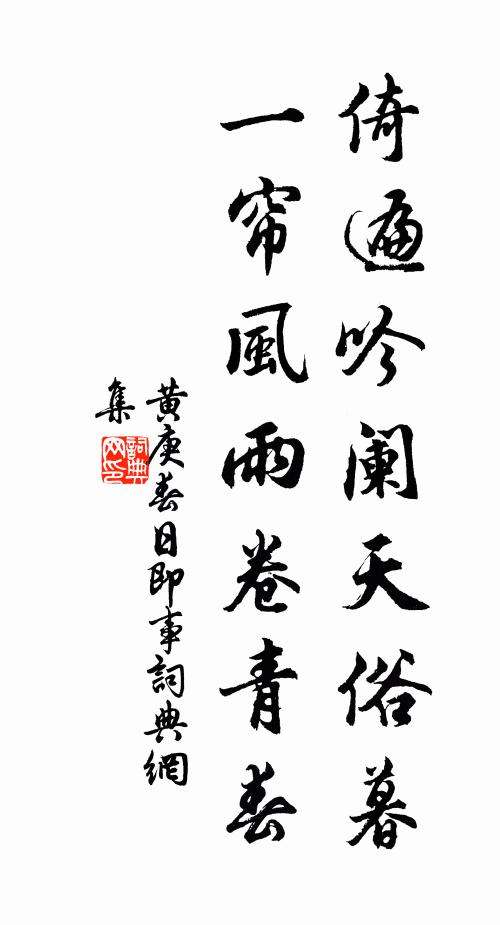 倚遍吟阑天俗暮
一帘風雨卷青春
黄庚春日即事詞典網
集
詞典网印